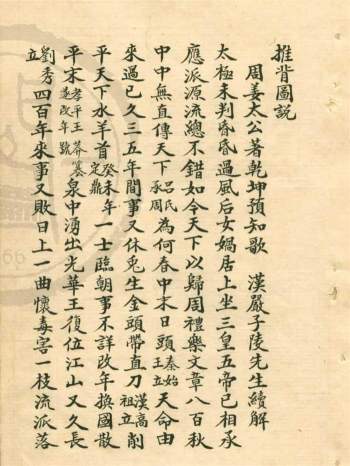 推背圖說
周姜太公著乾坤預知歌　漢嚴子陵先生續解
太極未判昏昏過風后女媧居上坐三皇五帝已相承
應派源流總不錯如今天下以歸周禮樂文章八百秋
中中無直傳天下呂氏承周為何春中末日頭秦始王立天命由
來過已久三五年間事又休兔生金頭帶直刀漢高祖立削
平天下水羊首癸未年定鼎一士臨朝事不詳改年換國散
平末孝平王莽篡遂改年號泉中湧出光華王復位江山又久長
劉秀立四百年來事又敗日上一曲懷毒害一枝流派落